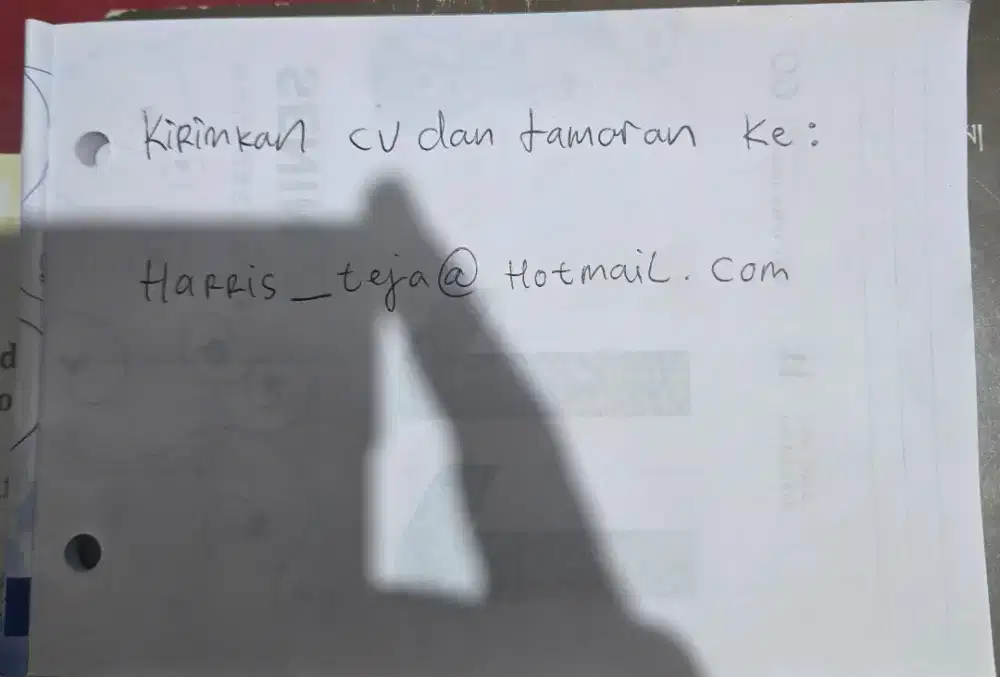 KiRimkan CV dan tamaran Ke:
HaRRis_teja@Hotmail.com